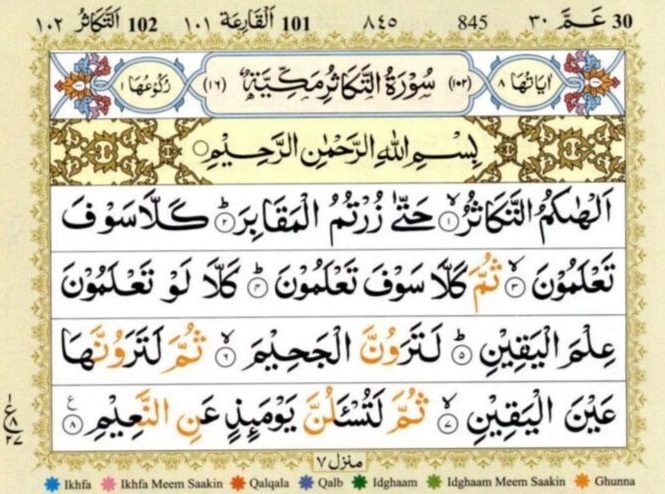 30 عَمَّ ٣٠ 845 ٨٤٥ 101 اَلْقَارِعَة ١٠١ 102 اَلتَّكَاثُر ١٠٢
اٰيَاتُهَا ٨ (١٠٢) سُوْرَةُ التَّكَاثُرِ مَكِّيَّةٌ (١٦) رُكُوْعُهَا ١
بِسْمِ اللهِ الرَّحْمٰنِ الرَّحِيْمِ
اَلْهٰىكُمُ التَّكَاثُرُ ۙ﴿١﴾ حَتّٰى زُرْتُمُ الْمَقَابِرَ ؕ﴿٢﴾ كَلَّا سَوْفَ
تَعْلَمُوْنَ ۙ﴿٣﴾ ثُمَّ كَلَّا سَوْفَ تَعْلَمُوْنَ ؕ﴿٤﴾ كَلَّا لَوْ تَعْلَمُوْنَ
عِلْمَ الْيَقِيْنِ ؕ﴿٥﴾ لَتَرَوُنَّ الْجَحِيْمَ ۙ﴿٦﴾ ثُمَّ لَتَرَوُنَّهَا
عَيْنَ الْيَقِيْنِ ۙ﴿٧﴾ ثُمَّ لَتُسْـَٔلُنَّ يَوْمَىِٕذٍ عَنِ النَّعِيْمِ ﴿٨﴾
ع ١ ٨ ٢٧
منزل ٧
Ikhfa Ikhfa Meem Saakin Qalqala Qalb Idghaam Idghaam Meem Saakin Ghunna